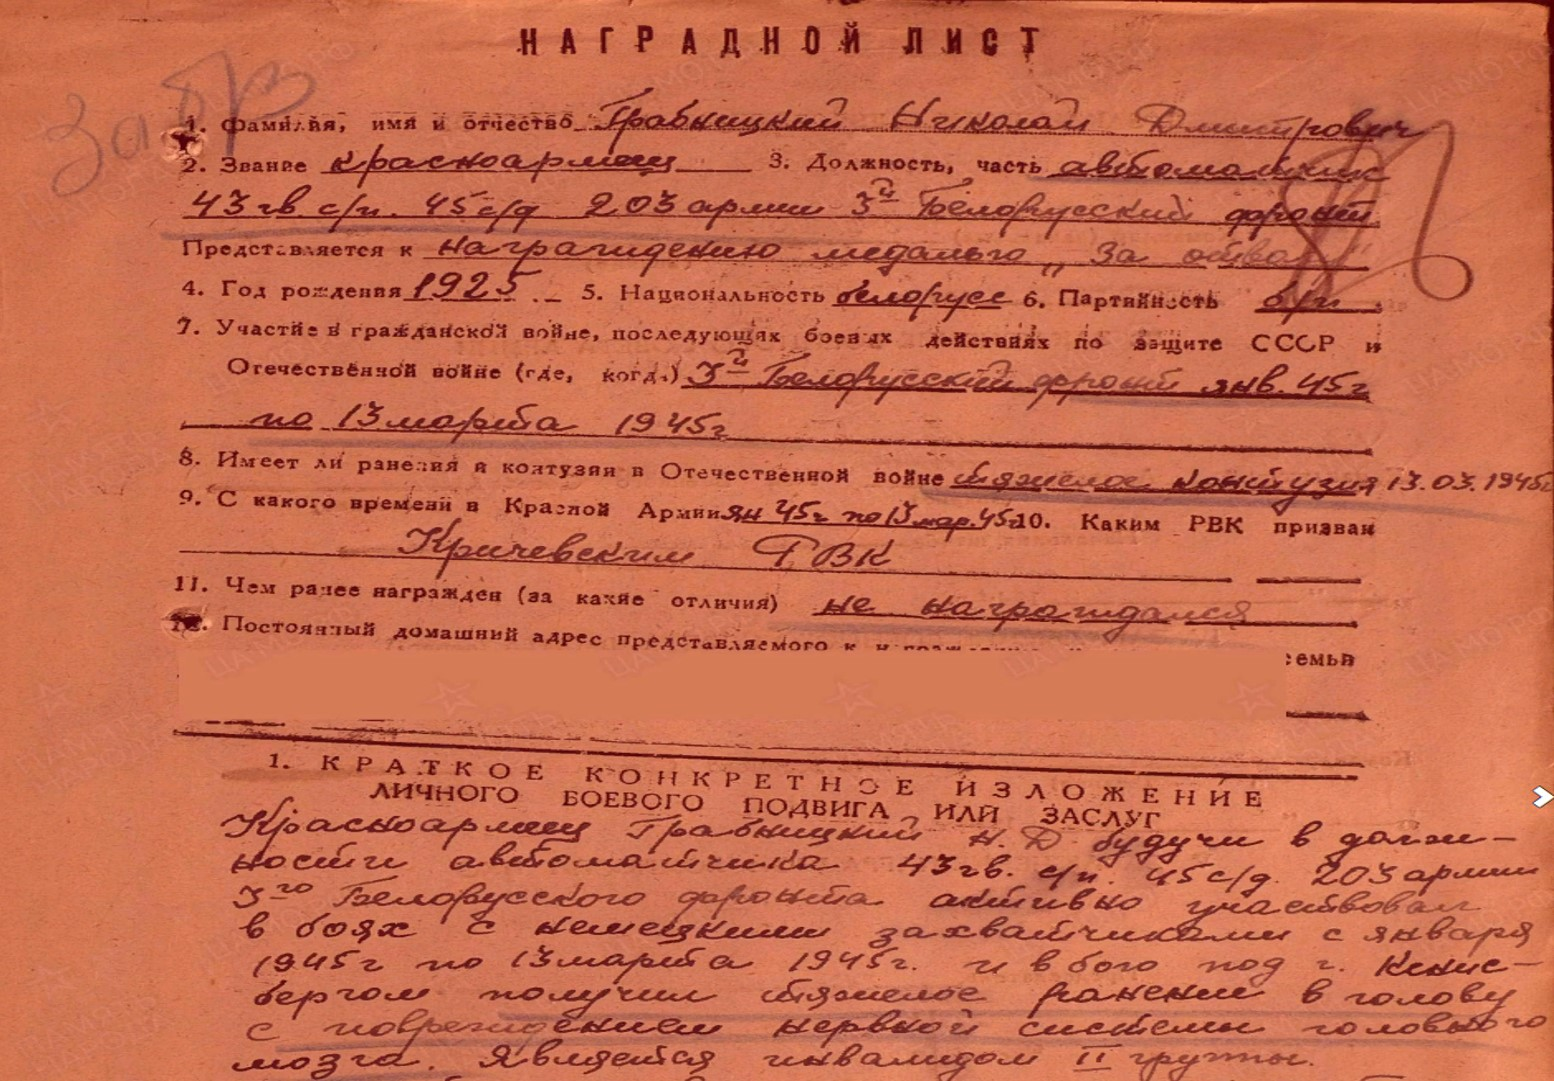 НАГРАДНОЙ ЛИСТ
1. Фамилия, имя и отчество Грабницкий Николай Дмитрович
2. Звание красноармеец 3. Должность, часть автоматчик
43 гв. с/п. 45 с/д 203 армии 3й Белорусский фронт
Представляется к награждению медалью „За отвагу"
4. Год рождения 1925 5. Национальность белорусс 6. Партийность б/п
7. Участие в гражданской войне, последующих боевых действиях по защите СССР и
Отечественной войне (где, когда) 3й Белорусский фронт янв. 45г
по 13 марта 1945г
8. Имеет ли ранения и контузии в Отечественной войне тяжелое контузия 13.03.1945г
9. С какого времени в Красной Армии ян 45г по 13 мар. 45г 10. Каким РВК призван
Кричевским РВК
11. Чем ранее награжден (за какие отличия) не награждался
12. Постоянный домашний адрес представляемого к
семьи
1. КРАТКОЕ КОНКРЕТНОЕ ИЗЛОЖЕНИЕ
ЛИЧНОГО БОЕВОГО ПОДВИГА ИЛИ ЗАСЛУГ
Красноармеец Грабницкий Н. Д будучи в долж-
ности автоматчика 43 гв. с/п. 45 с/д. 203 армии
3го Белорусского фронта активно участвовал
в боях с немецкими захватчиками с января
1945г по 13 марта 1945г. и в бою под г. Кенис-
бергом получил тяжелое ранение в голову
с повреждением нервной системы головного
мозга. Является инвалидом II группы.